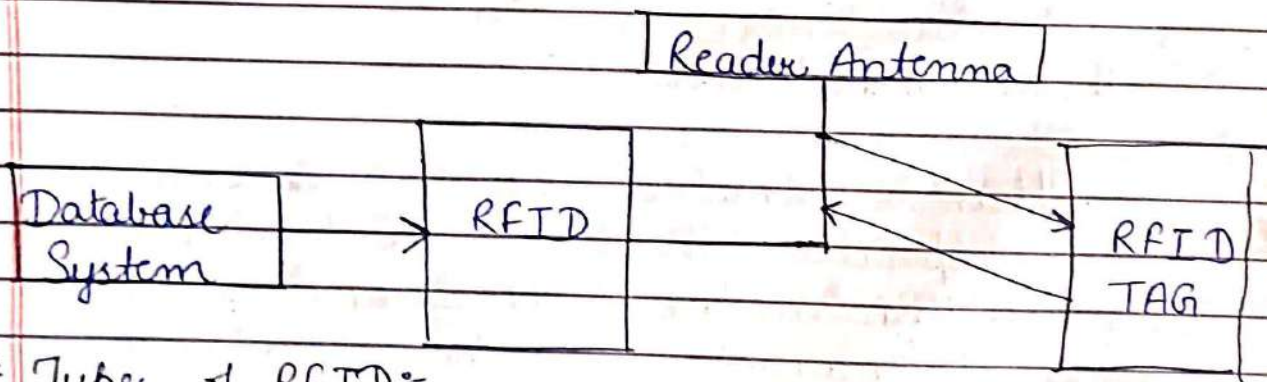 Reader Antenna
Database
System
RFID
RFID
TAG
Types of RFID:-